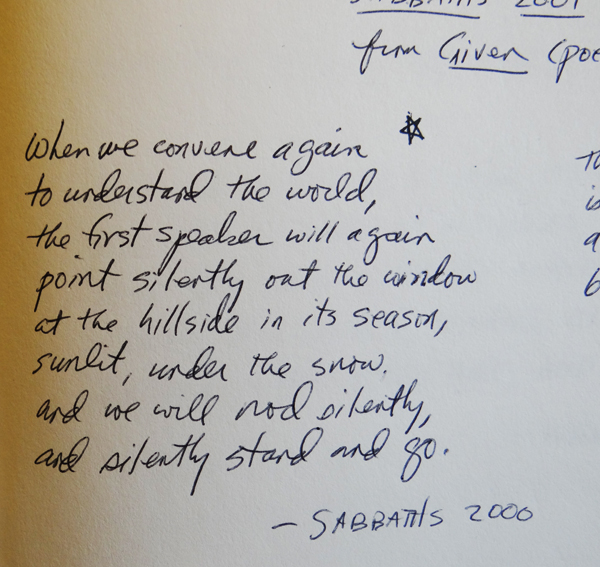 SABBATHS 2001
from Given (poe
When we convene again
to understand the world,
the first speaker will again
point silently out the window
at the hillside in its season,
sunlit, under the snow.
and we will nod silently,
and silently stand and go.
— SABBATHS 2000
th
is
a
b